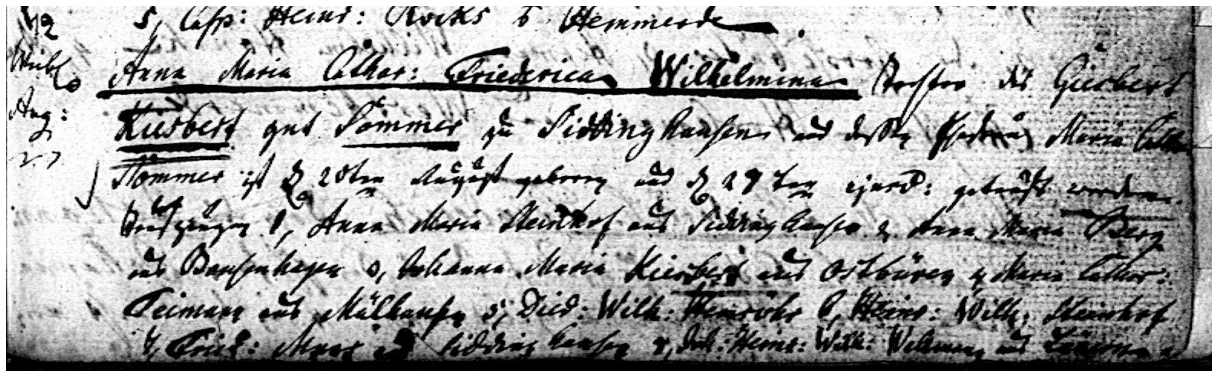 5, Casp: Heinr: Rocks v Hemmerde
Anna Maria Cathar: Friederica Wilhelmina Tochter des Giesbert
Aug: Kiesbert gnt Sömmer zu Siddinghausen und deßen Ehefrau Maria Cathar
27 Sömmer ist d 28ten August geboren und d 29ten ejusd: getauft worden
Taufzeugen 1, Anna Maria Steinhof aus Siddinghausen 2 Anna Maria Berg
aus Bausenhagen 3, Johanna Maria Kiesbert aus Ostbüren 4 Maria Cathar:
aus Mülhausen 5, Died: Wilh: 6, Heinr: Wilh: Steinhof
7, Fried: aus Siddinghausen 8, Joh: Heinr: Wilh: aus